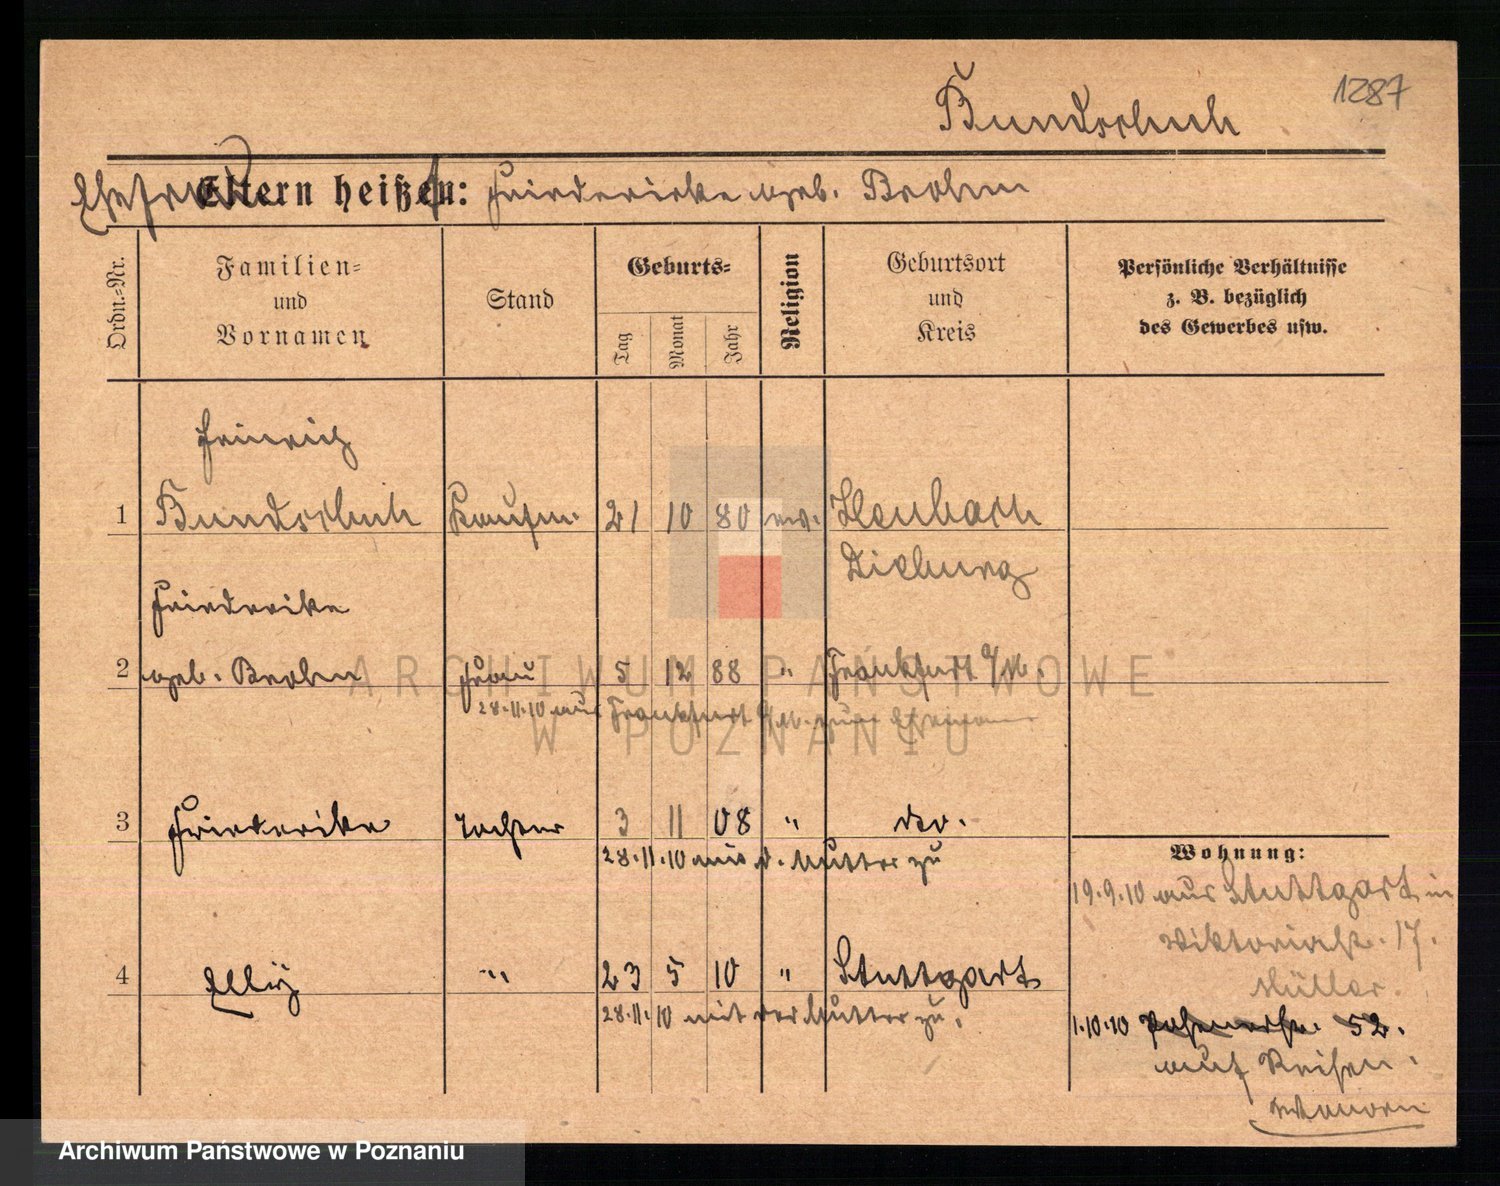 1287
Bundschuh
Ehefrau
Eltern heißen: Friederike geb. Brohm
Ordn.-Nr.
Familien-
und
Vornamen
Stand
Geburts-
Tag
Monat
Jahr
Religion
Geburtsort
und
Kreis
Persönliche Verhältnisse
z. B. bezüglich
des Gewerbes usw.
Heinrich
1 Bundschuh Kaufm. 21 10 80 ev. Heubach
Dieburg
Friederike
2 geb. Brohm Frau 5 12 88 " Frankfurt a/M.
28.11.10 aus Frankfurt a/M. zum Ehemann
3 Friederike Tochter 3 11 08 " do.
28.11.10 mit d. Mutter zu
Wohnung:
19.9.10 aus Stuttgart in
Viktoriastr. 17.
Müller.
4 Elly " 23 5 10 " Stuttgart
28.11.10 mit der Mutter zu.
1.10.10 52.
auf Reisen.
ARCHIWUM PAŃSTWOWE
W POZNANIU
Archiwum Państwowe w Poznaniu